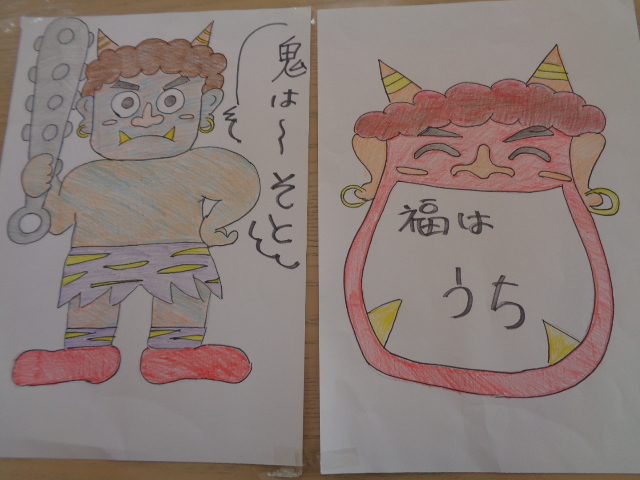 鬼は〜そと
福は
うち